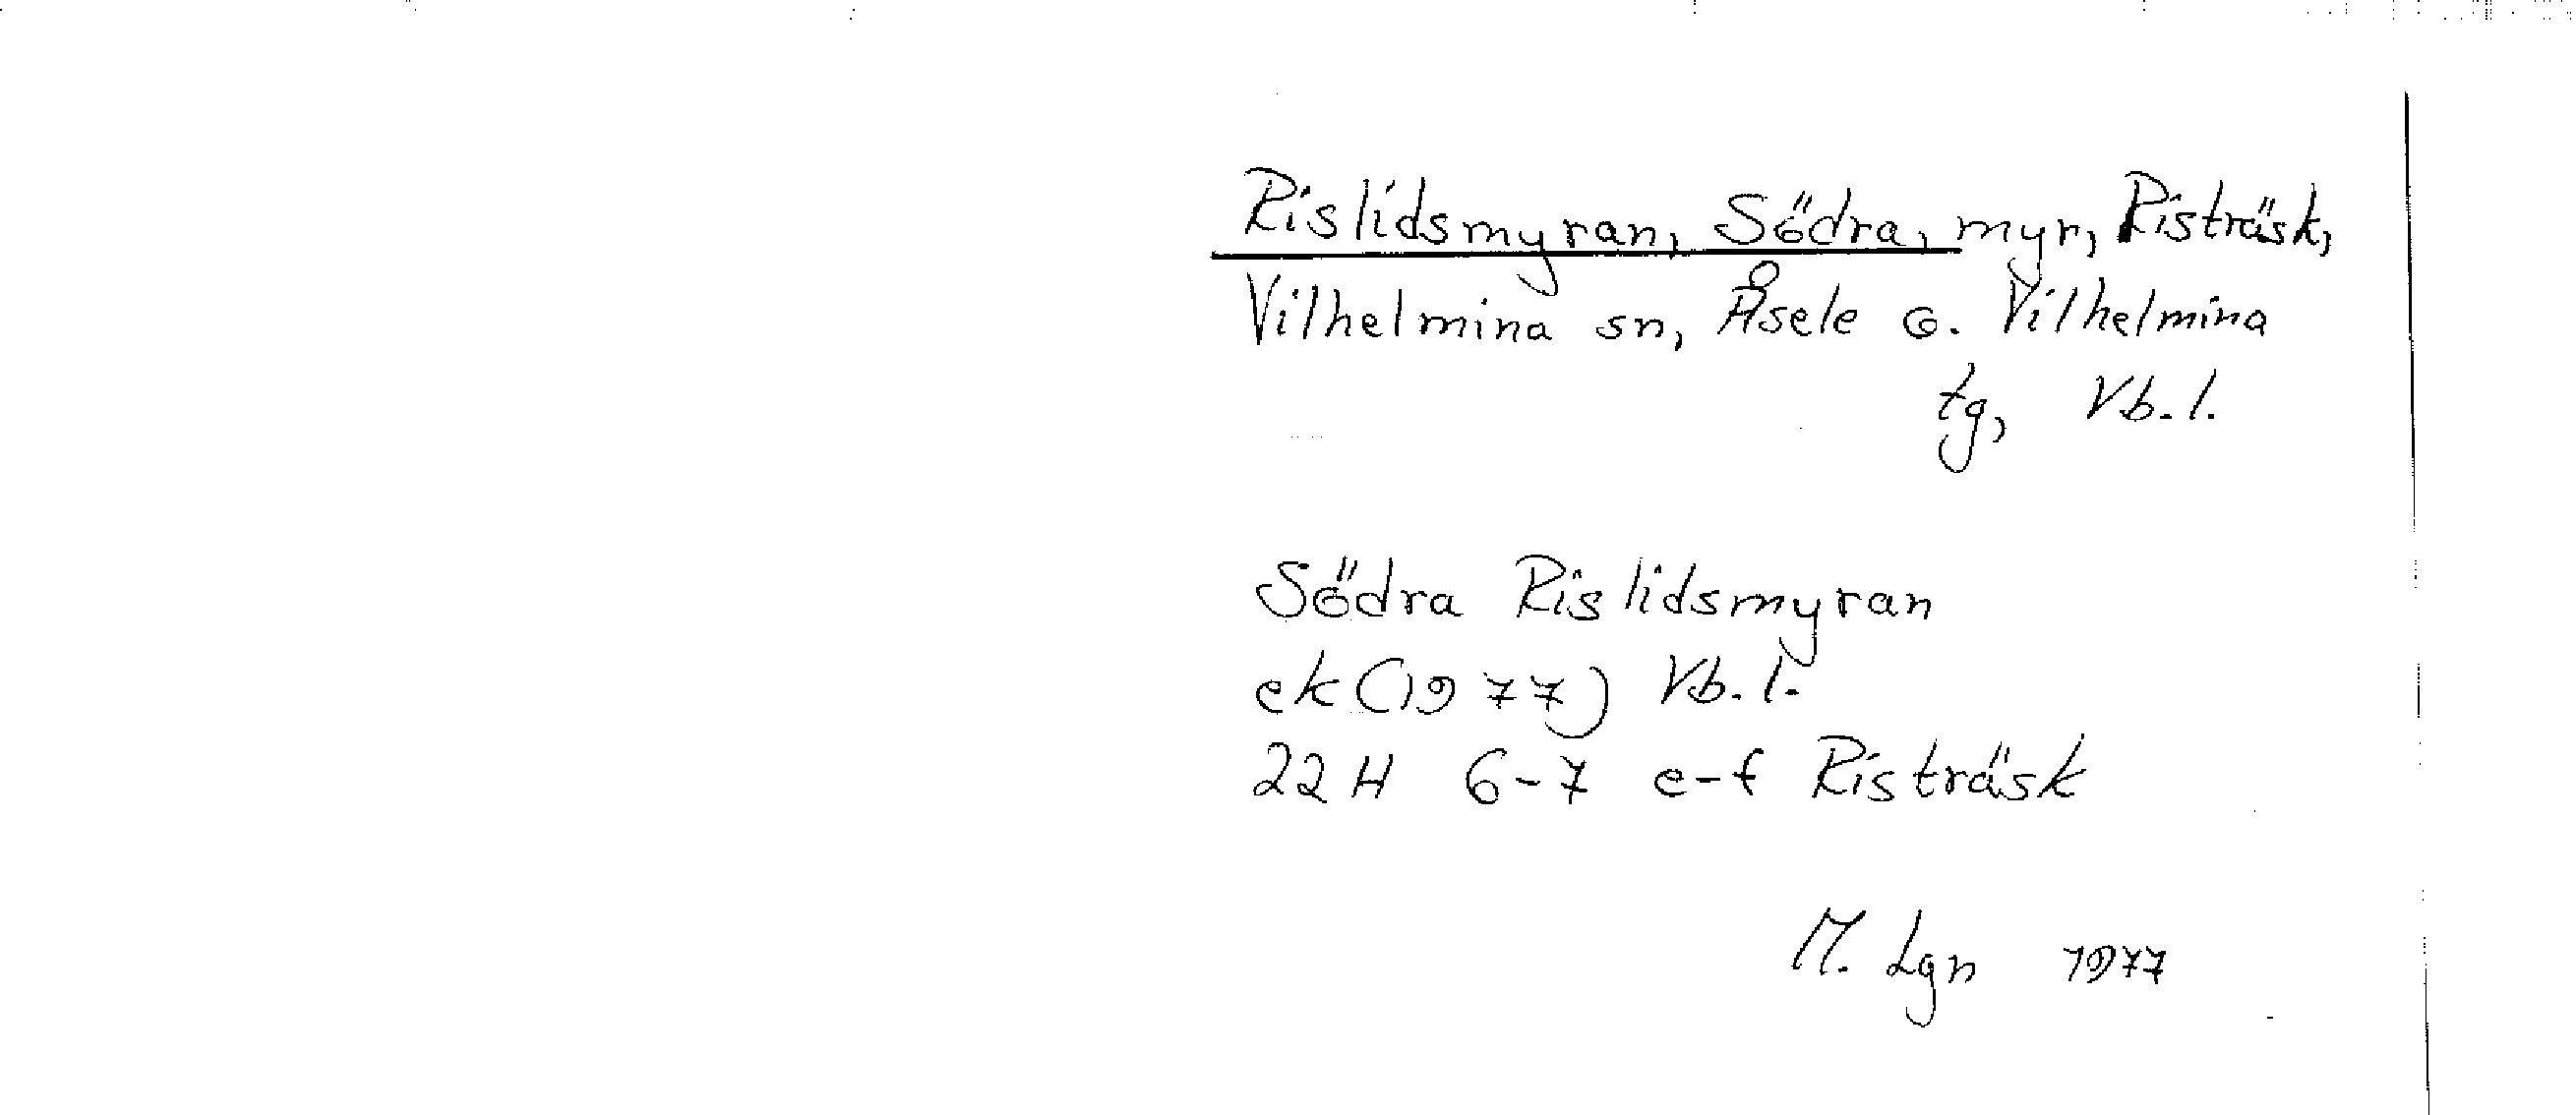 Rislidsmyran, Södra, myr, Risträsk,
Vilhelmina sn, Åsele o. Vilhelmina
tg, Vb. l.
Södra Rislidsmyran
ek (1977) Vb. l.
22 H 6-7 e-f Risträsk
M. Lgn 1977